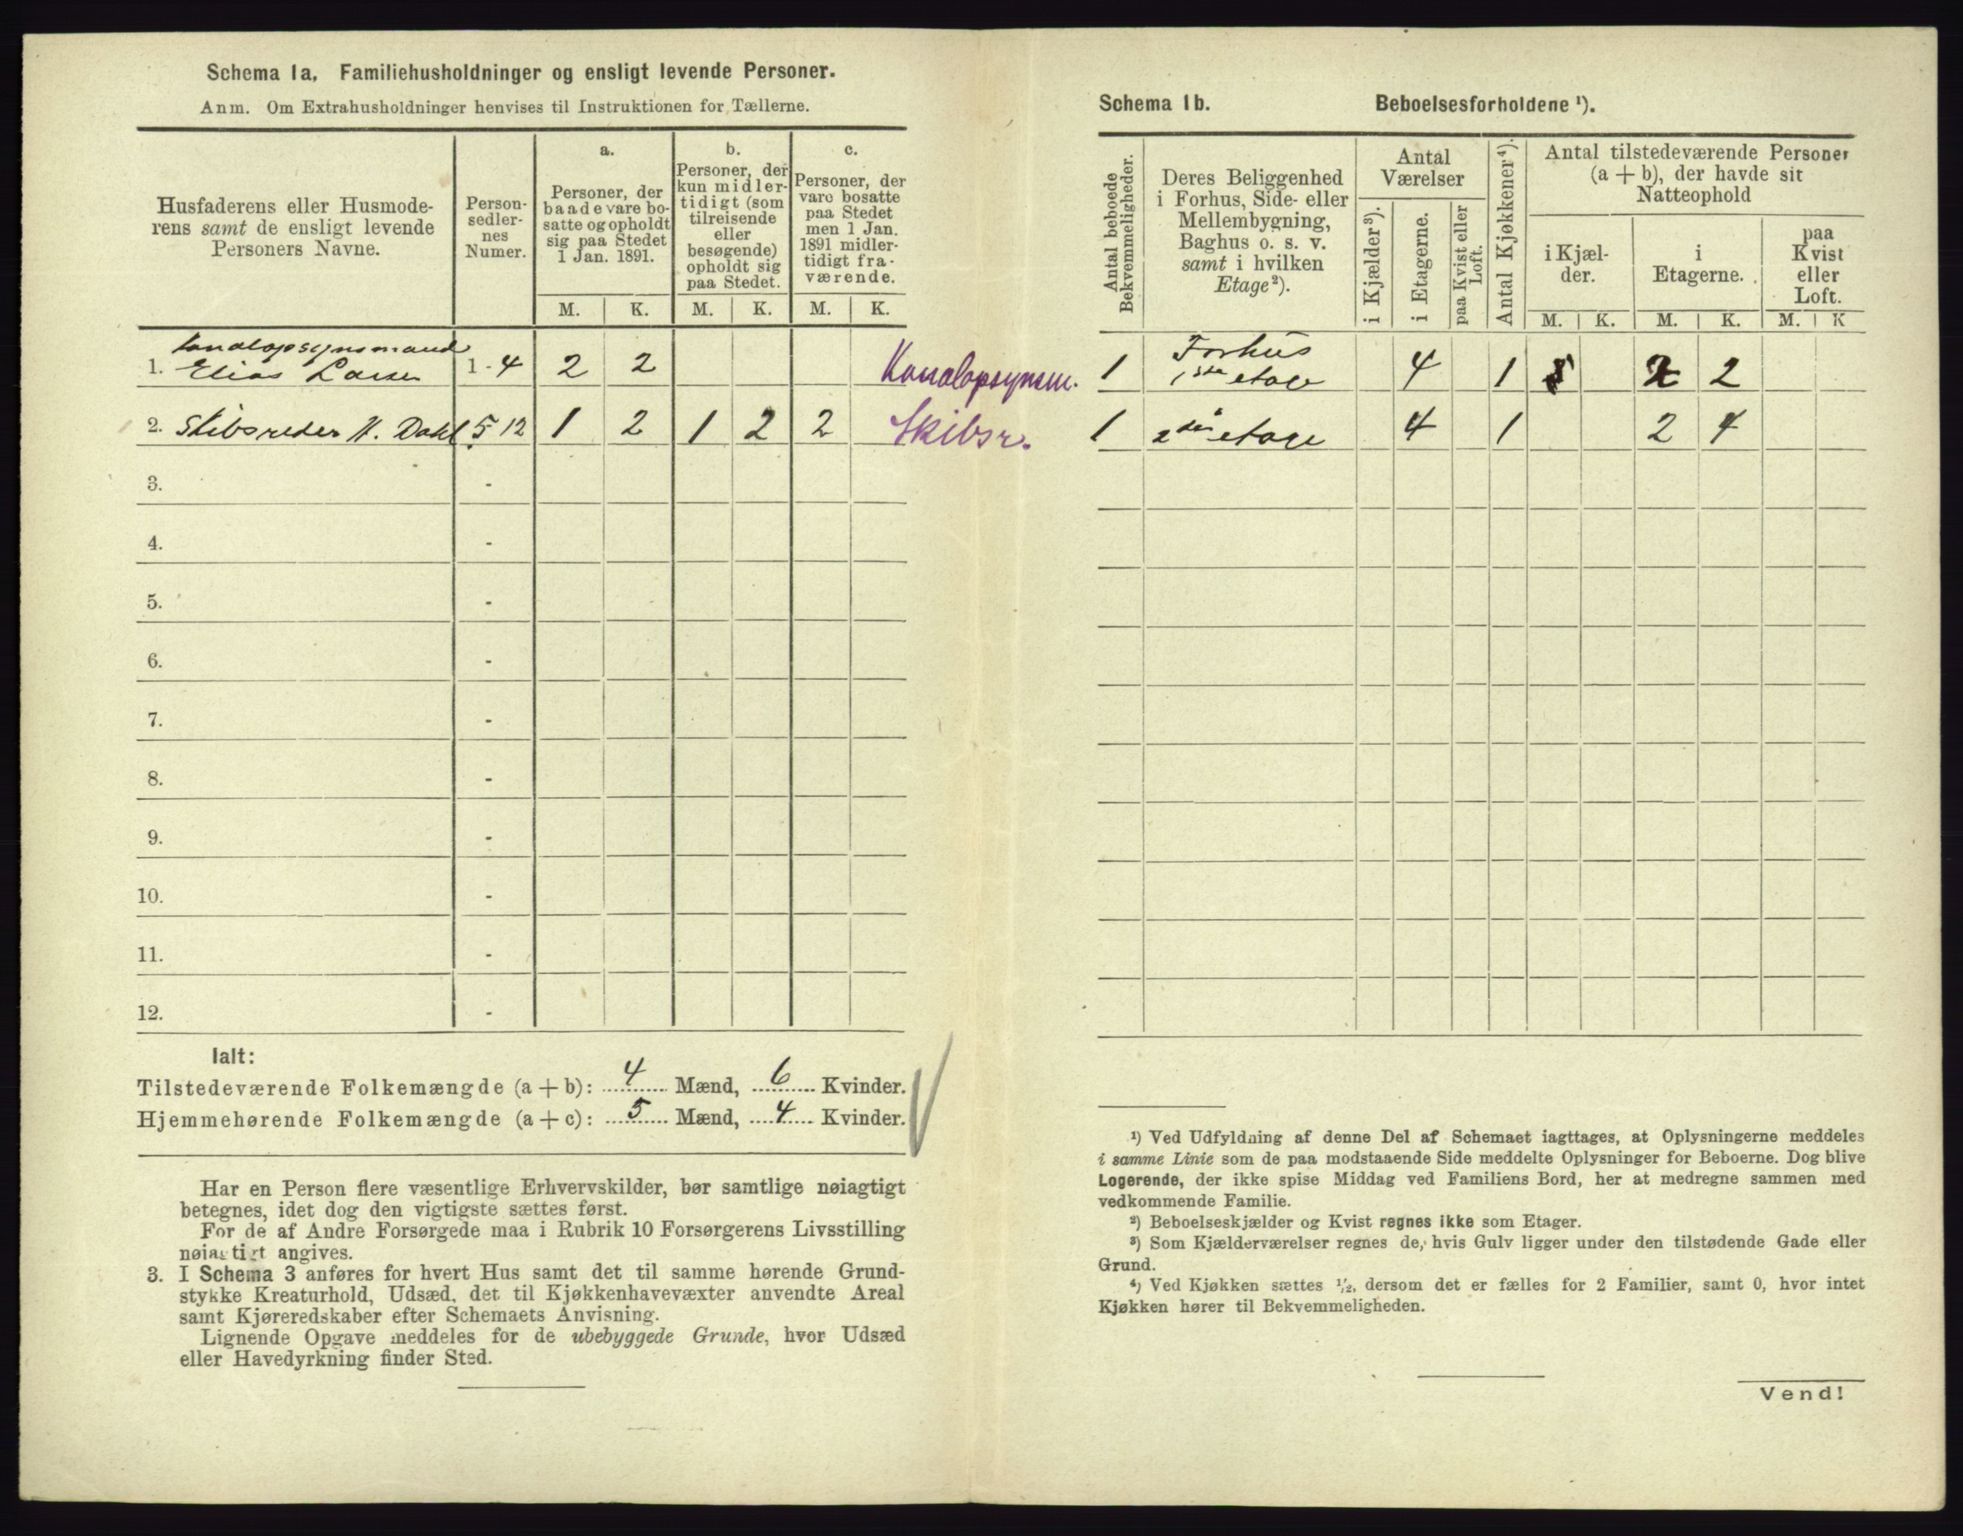 Schema 1a. Familiehusholdninger og ensligt levende Personer.
Anm. Om Extrahusholdninger henvises til Instruktionen for Tællerne.
Husfaderens eller Husmode-
rens samt de ensligt levende
Personers Navne.
Person-
sedler-
nes
Numer.
a.
Personer, der
baade vare bo-
satte og opholdt
sig paa Stedet
1 Jan. 1891.
b.
Personer, der
kun midler-
tidigt (som
tilreisende
eller
besøgende)
opholdt sig
paa Stedet.
c.
Personer, der
vare bosatte
paa Stedet
men 1 Jan.
1891 midler-
tidigt fra-
værende.
M. K. M. K. M. K.
Kanalopsynsmand
1. Elias Larsen 1 - 4 2 2 Kanalopsynsm.
2. Skibsreder H. Dahl 5 - 12 1 2 1 2 2 Skibsr.
3. -
4. -
5. -
6. -
7. -
8. -
9. -
10. -
11. -
12. -
Ialt:
Tilstedeværende Folkemængde (a + b): 4 Mænd, 6 Kvinder.
Hjemmehørende Folkemængde (a + c): 5 Mænd, 4 Kvinder.
Har en Person flere væsentlige Erhvervskilder, bør samtlige nøiagtigt
betegnes, idet dog den vigtigste sættes først.
For de af Andre Forsørgede maa i Rubrik 10 Forsørgerens Livsstilling
nøiagtigt angives.
3. I Schema 3 anføres for hvert Hus samt det til samme hørende Grund-
stykke Kreaturhold, Udsæd, det til Kjøkkenhavevæxter anvendte Areal
samt Kjøreredskaber efter Schemaets Anvisning.
Lignende Opgave meddeles for de ubebyggede Grunde, hvor Udsæd
eller Havedyrkning finder Sted.
Schema 1b. Beboelsesforholdene ¹).
Antal beboede
Bekvemmeligheder.
Deres Beliggenhed
i Forhus, Side- eller
Mellembygning,
Baghus o. s. v.
samt i hvilken
Etage²).
Antal
Værelser
i Kjælder³).
i Etagerne.
paa Kvist eller
Loft.
Antal Kjøkkener⁴).
Antal tilstedeværende Personer
(a + b), der havde sit
Natteophold
i Kjæl-
der.
i
Etagerne.
paa
Kvist
eller
Loft.
M. K. M. K. M. K
Forhus
1 1ste etage 4 1 2 2
1 2den etage 4 1 2 4
¹) Ved Udfyldning af denne Del af Schemaet iagttages, at Oplysningerne meddeles
i samme Linie som de paa modstaaende Side meddelte Oplysninger for Beboerne. Dog blive
Logerende, der ikke spise Middag ved Familiens Bord, her at medregne sammen med
vedkommende Familie.
²) Beboelseskjælder og Kvist regnes ikke som Etager.
³) Som Kjælderværelser regnes de, hvis Gulv ligger under den tilstødende Gade eller
Grund.
⁴) Ved Kjøkken sættes ½, dersom det er fælles for 2 Familier, samt 0, hvor intet
Kjøkken hører til Bekvemmeligheden.
Vend!